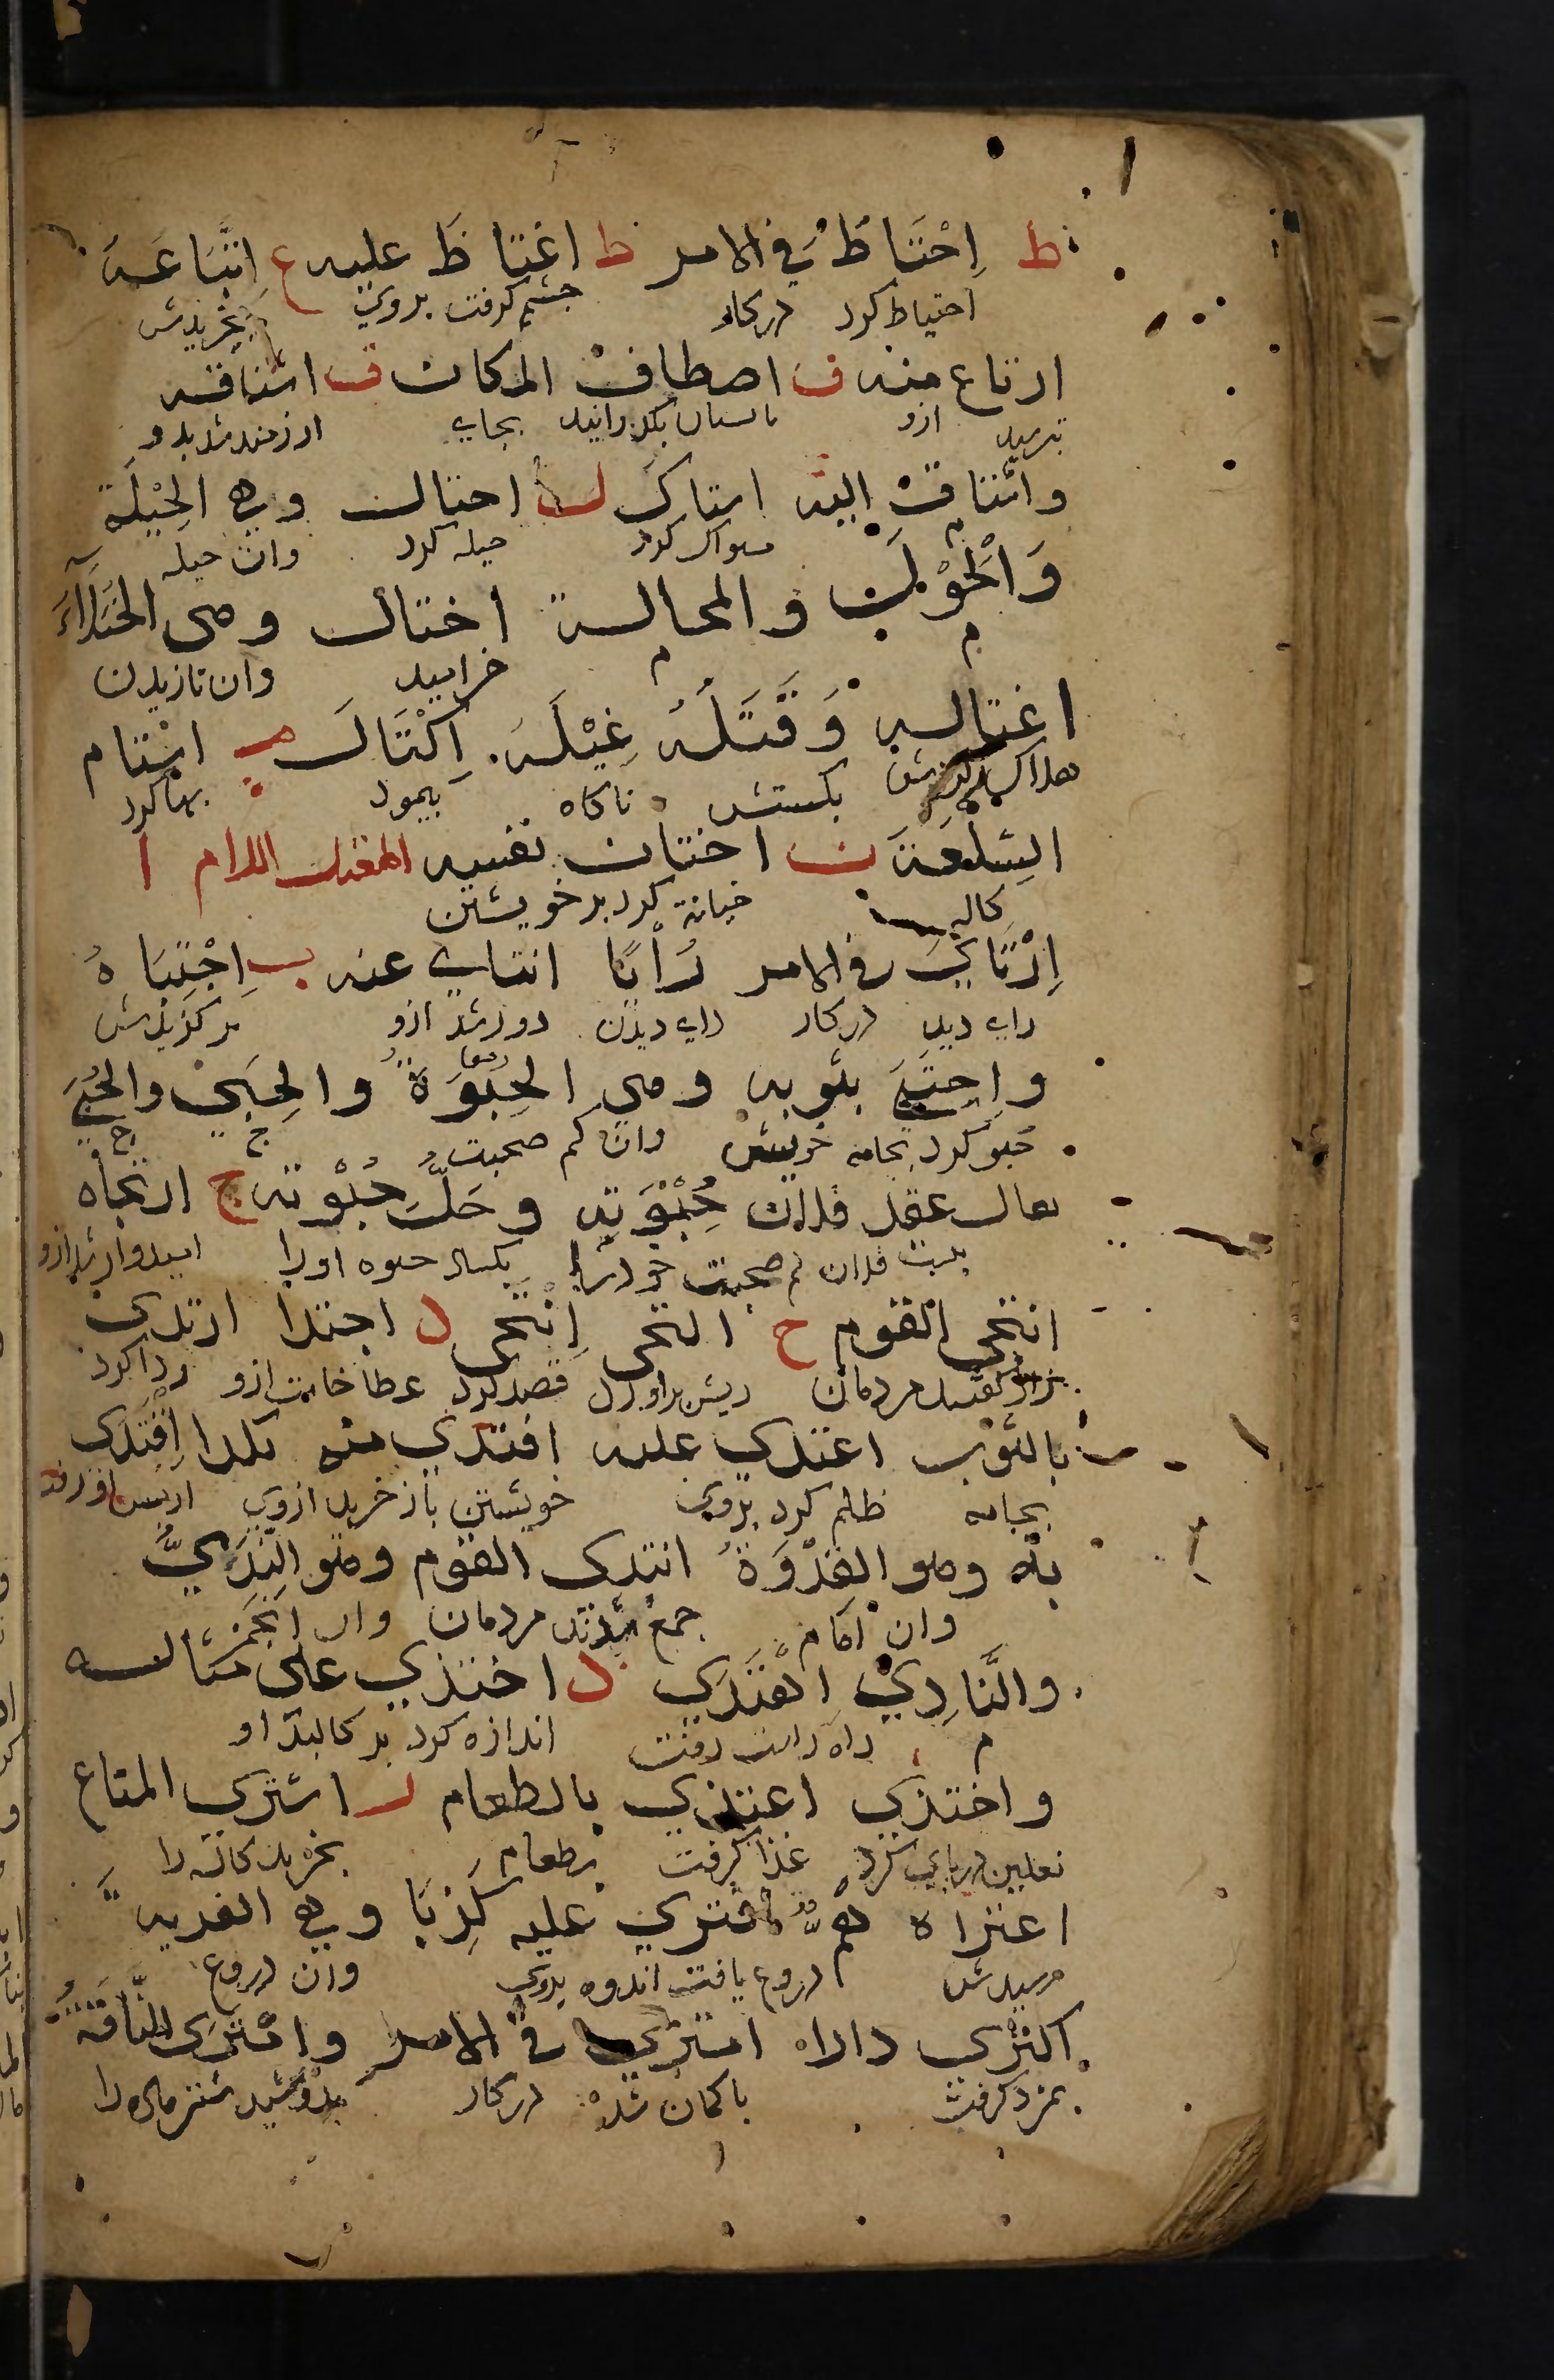 ط اِحْتَاطَ في الامر ظ اغتاظ عليه ع اِبْتَاعَهَ
احتياط كرد دركار خشم كرفت بروى بخريدش
ارتاع منه ف اصطاف المكان ق اشتاقه
بترسيد ازو تابستان بكذرانيد بجاى ارزمند شد بدو
واشتاق اليه استاك ل احتال وهى الحِيْلَة
م مسواك كرد حيله كرد وان حيله
وَالْحَوْلَ والمحالة اختال وهى الخُيَلَاءَ
م م خراميد وان نازيدن
اغتاله وَقَتَلَهُ غِيْلَة اِكْتَالَ م استام
هلاك كردش بكشتش ناكاه بپيمود بها كرد
السِلْعَةَ ن اختان نفسه المعتل اللام ا
كاله خيانة كرد بر خويشتن
اِرْتَاىَ في الامر رَأْيًا انتاى عنه ب اِجْتَبَاهُ
راى ديد دركار راى ديدن دور شد ازو بركزيدش
واِحتَبَى بثوبه وهى الحِبْوَةُ والحِبَى والحُبَى
حبو كرد بجامه خويش وان ج ج
يقال عقد فلان حُبْوَتَه وحَلَّ حُبْوَتَه ج ارتجاه
ببست فلان خود را اوميدوار شد ازو
انتجى القوم ح التحى اِنْتَحى د اجتدا ارتدى
راز كفتند مردمان ريش براورد قصد كرد عطا خاست ازو ردا كرد
بالثوب اعتدى عليه افتدى منه بكذا اِقْتَدى
بجامه ظلم كرد بروى خويشتن باز خريد ازوى
به وهو القدْوَةُ انتدى القوم وهو النَدِىُّ
وان امام جمع شدند مردمان وان انجمن
والنَّادِىْ اهْتَدَى ذ احتذى على مثاله
م راه راست رفت اندازه كرد بر كالبد او
واحتذى اعتذى بالطعام ر اشترى المتاع
نعلين در پاى كرد غذا كرفت بطعام بخريد كاله را
اعتراه هَمٌّ افترى عليه كَذِبًا وهى الفرية
رسيدش اندوه دروغ يافت بروى وان دروغ
اكترى دارا امترى في الامر وامْتَرى النَّاقَةَ
بمزد كرفت با كمان شد دركار بدوشيد شتر ماده را